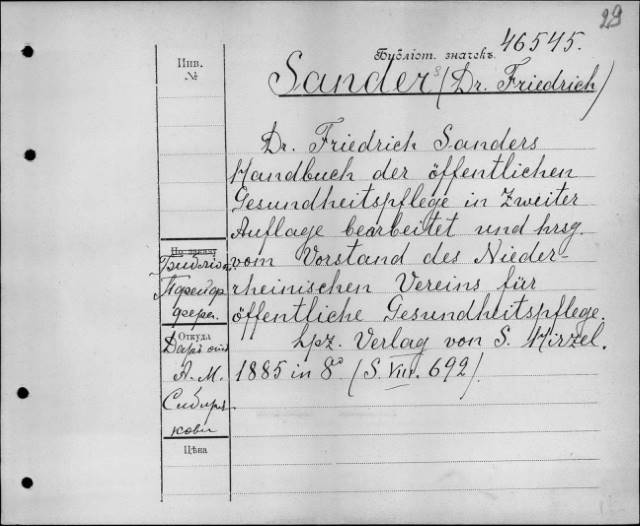 29
Бубліот. значекъ 46545.
Инв.
№
Sanders (Dr. Friedrich)
Dr. Friedrich Sanders
Handbuch der öffentlichen
Gesundheitspflege in zweiter
Auflage bearbeitet und hrsg.
vom Vorstand des Nieder-
rheinischen Vereins für
öffentliche Gesundheitspflege.
Lpz. Verlag von S. Hirzel.
1885 in 8° (S. VIII. 692).
Откуда
Даръ
А. М.
Сибиря-
кова
Цѣна